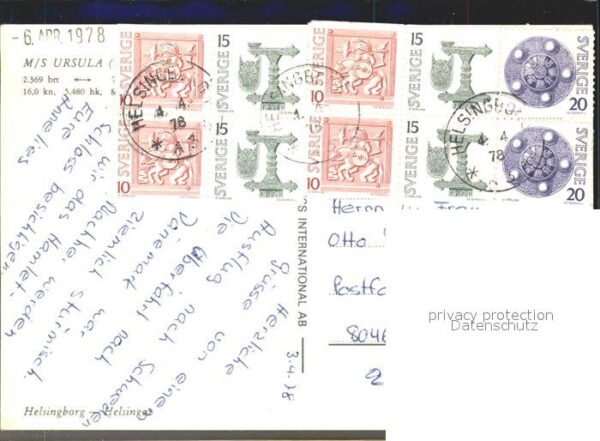 - 6. APR. 1978
M/S URSULA (
2.369 brt ⟷
16,0 kn, 3.480 hk, 8
SVERIGE 10
SVERIGE 15
SVERIGE 10
SVERIGE 15
SVERIGE 20
SVERIGE 10
SVERIGE 15
SVERIGE 10
SVERIGE 15
SVERIGE 20
HELSINGBO
4. 4. 78
HELSINGBO
HELSINGBO
4. 4 78
3.4.78
Herzliche
Grüsse von einem
Ausflug nach Schweden
Die Überfahrt nach
Dänemark war
ziemlich stürmisch.
Nachher werden
wir das Hamlet-
schloss besichtigen.
Eure
Annelies
Helsingborg — Helsingør
OS INTERNATIONAL AB
Herrn u. Frau
Otto
Postfa
8046
privacy protection
Datenschutz